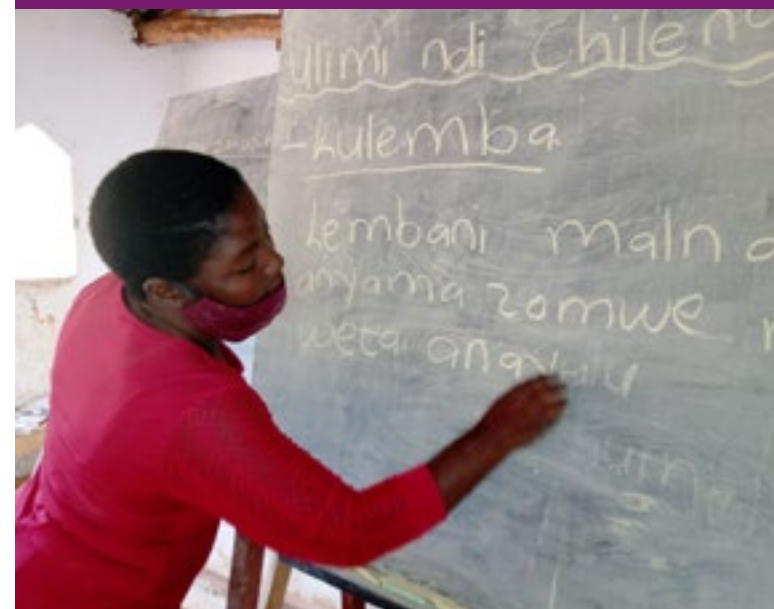 ulimi ndi Chilen
-kulemba
Lembani maln a
anyama zomwe
weta